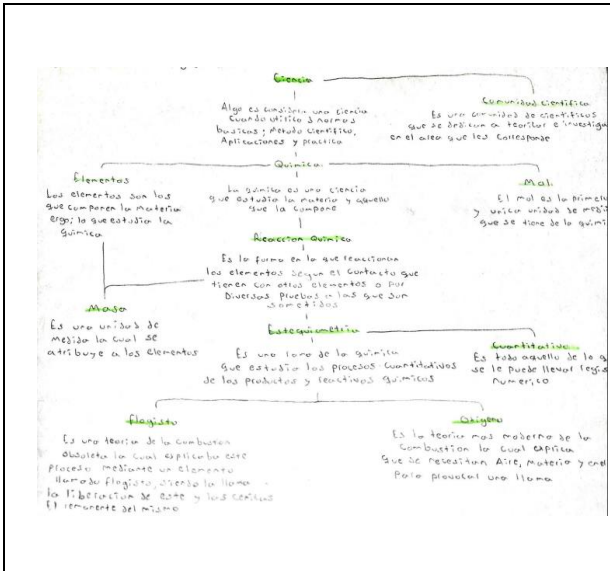 Ciencia
Algo es considera una ciencia
Cuando utiliza 3 normas
basicas; Metodo cientifico,
Aplicaciones y practica
Comunidad Cientifica
Es una comunidad de cientificos
que se dedican a teorizar e investiga
en el area que les corresponde
Quimica
La quimica es una ciencia
que estudia la materia y aquello
que la compone
Elementos
Los elementos son los
que componen la materia
ergo; lo que estudia la
quimica
Mol
El mol es la primera
y unica unidad de medi
que se tiene de la quimi
Reaccion Quimica
Es la forma en la que reaccionan
los elementos segun el contacto que
tienen con otros elementos o por
Diversas pruebas a las que son
sometidos
Masa
Es una unidad de
medida la cual se
atribuye a los elementos
Estequiometria
Es una rama de la quimica
que estudia los procesos cuantitativos
de los productos y reactivos quimicos
Cuantitativo
Es todo aquello de lo q
se le puede llevar regis
numerico
flogisto
Es una teoria de la combustion
obsoleta la cual explicaba este
proceso mediante un elemento
llamado flogisto, siendo la llama
la liberacion de este y las cenizas
El remanente del mismo
Oxigeno
Es la teoria mas moderna de la
Combustion la cual explica
que se necesitan Aire, Materia y ene
Para provocar una llama